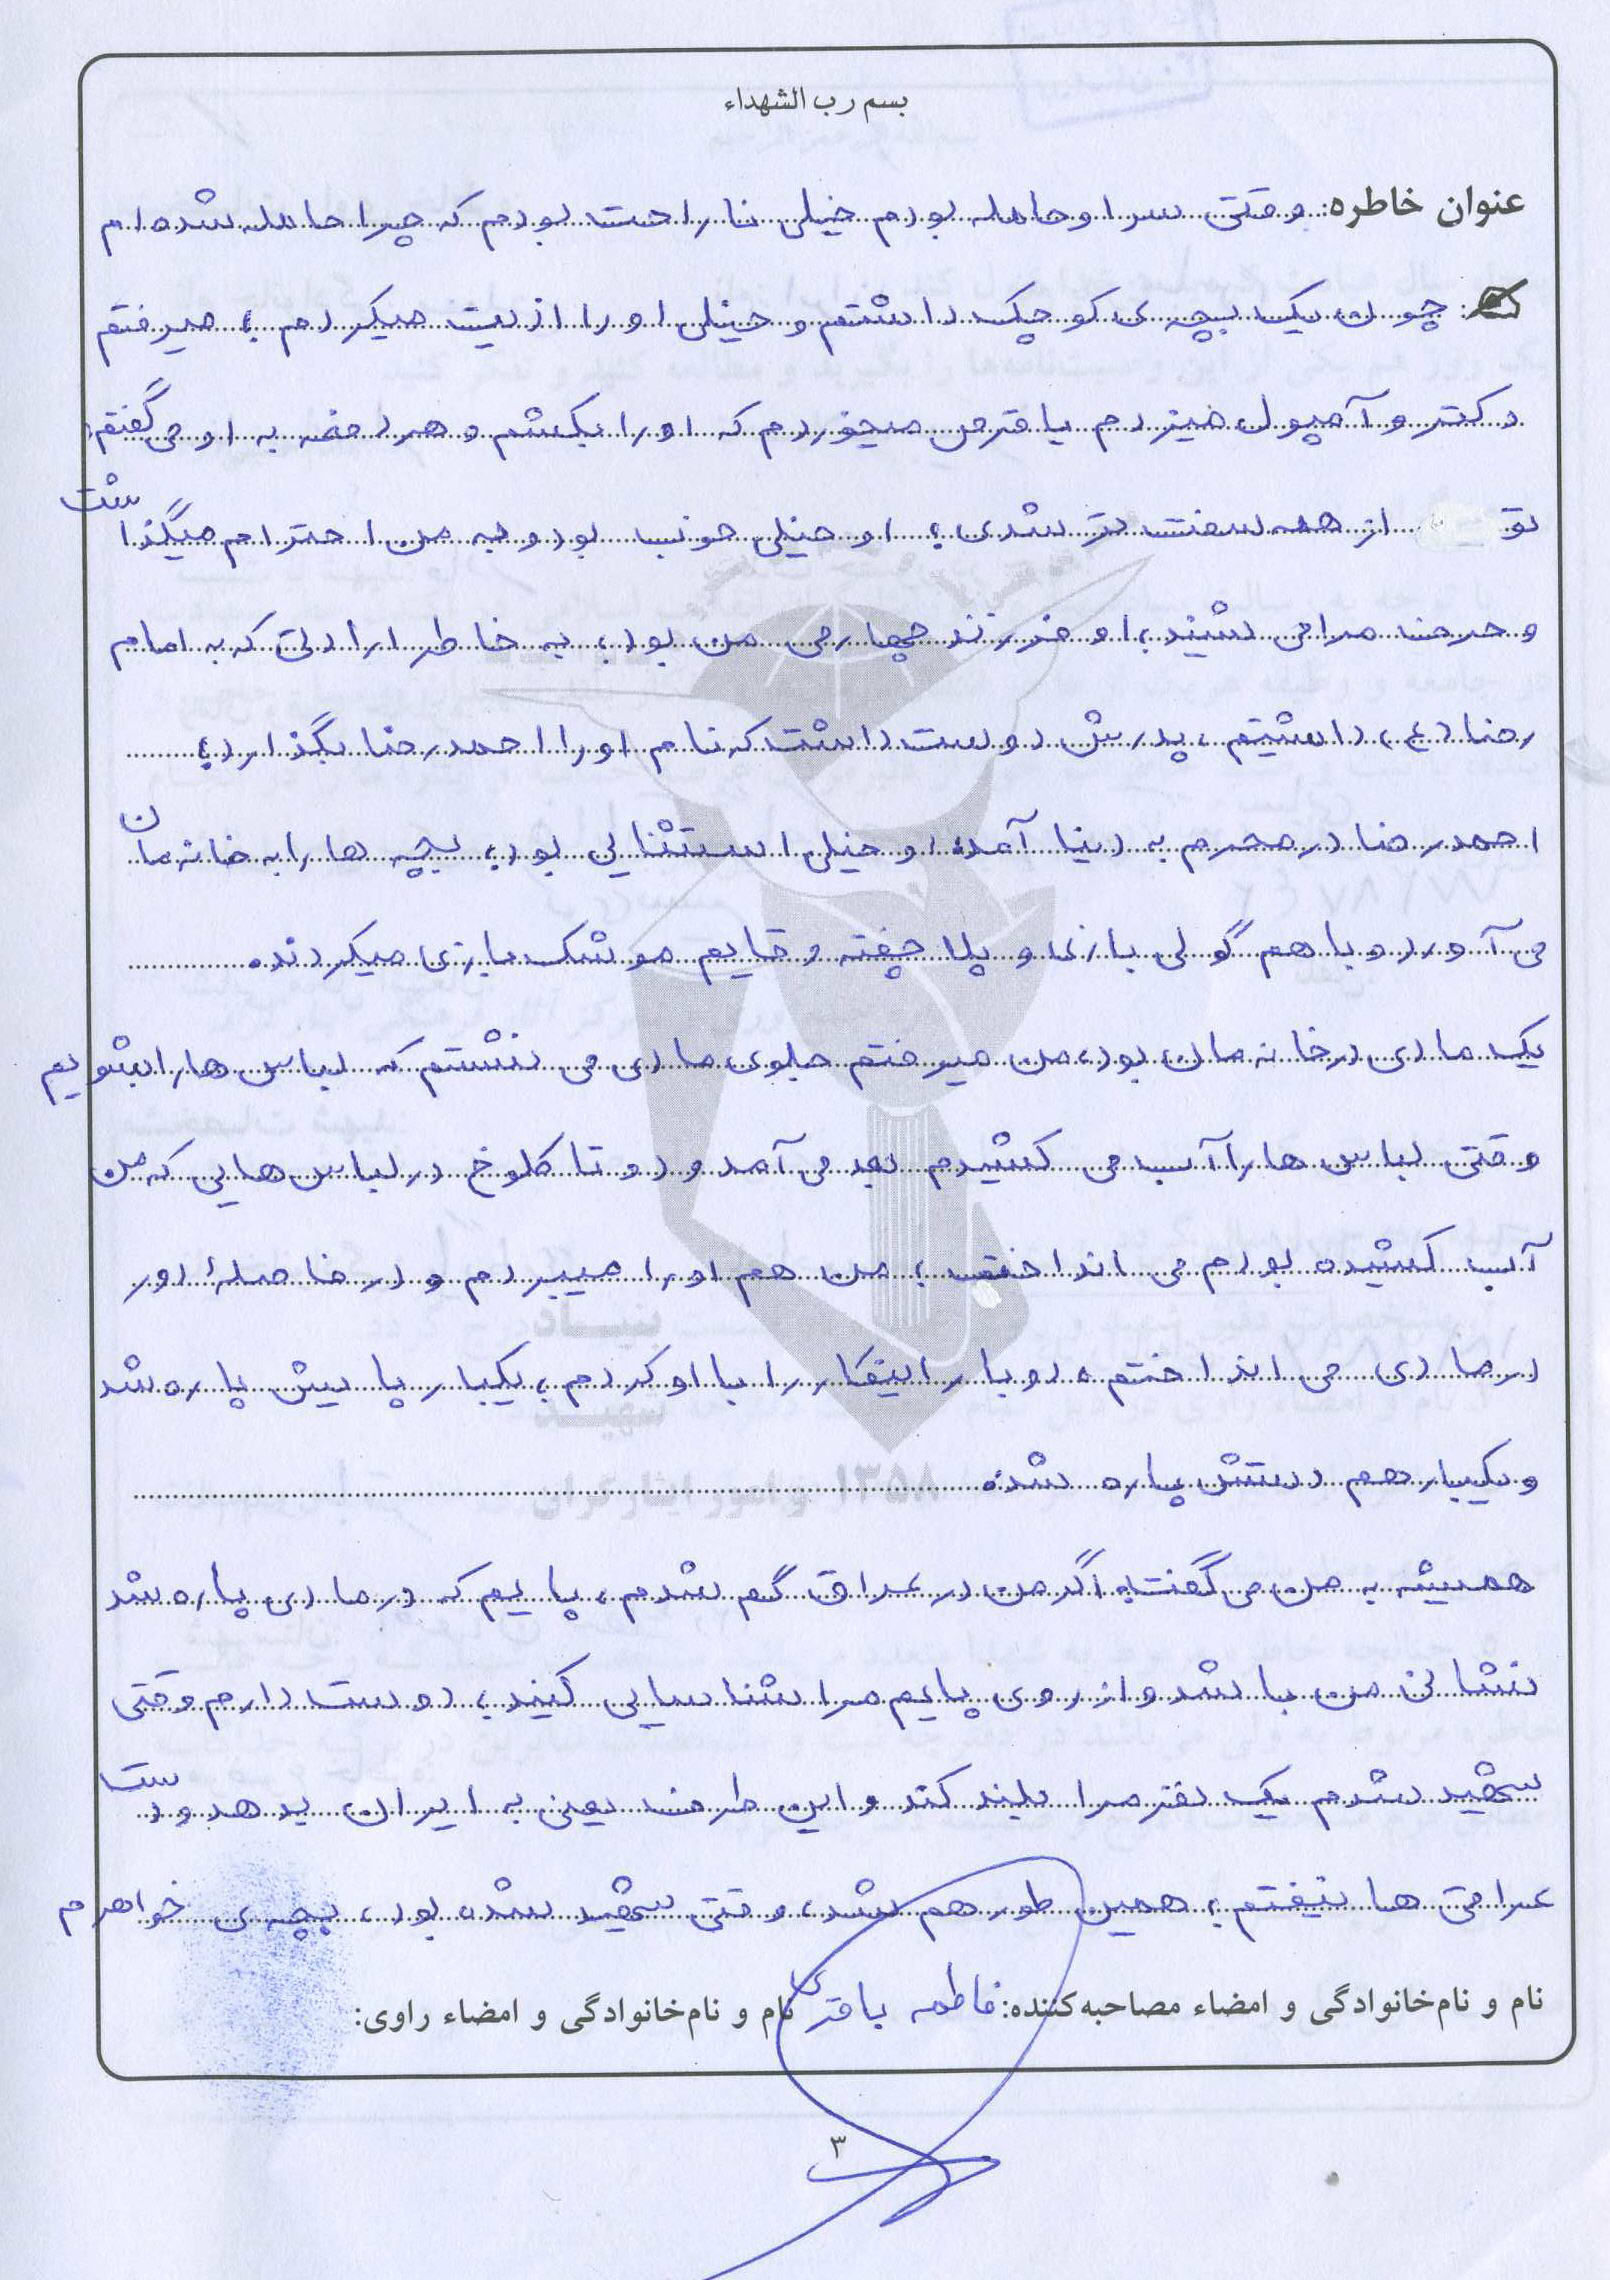 بسم رب الشهداء
عنوان خاطره: وقتی سر او حامله بودم خیلی ناراحت بودم که چرا حامله شده ام
: چون یک بچه ی کوچک داشتم و خیلی او را ازیت میکردم ، میرفتم
دکتر و آمپول میزدم یا قرص میخوردم که او را بکشم و هر دفعه به او می گفتم:
تو از همه سفت تر شدی ، او خیلی خوب بود و به من احترام میگذاشت
و حرف مرا می شنید ، او فرزند چهارمی من بود ، به خاطر ارادتی که به امام
رضا (ع) داشتیم ، پدرش دوست داشت که نام او را احمدرضا بگذارد ،
احمدرضا در محرم به دنیا آمد، او خیلی استثنایی بود ، بچه ها را به خانه مان
می آورد و با هم گولی بازی و پلا چفته و قایم موشک بازی میکردند.
یک مادی در خانه مان بود ، من میرفتم جلوی مادی می نشستم که لباس ها را بشویم
وقتی لباس ها را آب می کشیدم بعد می آمد و دو تا کلوخ در لباس هایی که من
آب کشیده بودم می انداخت ، من هم او را میبردم و در فاصلهٔ دور
در مادی می انداختم ، دوبار اینکار را با او کردم ، یکبار پایش پاره شد
و یکبار هم دستش پاره شد.
همیشه به من می گفت: اگر من در عراق گم شدم ، پایم که در مادی پاره شد
نشانی من باشد و از روی پایم مرا شناسایی کنید ، دوست دارم وقتی
شهید شدم یک نفر مرا بلند کند و این طرف یعنی به ایران بدهد و دست
عراقی ها نیفتم ، همین طور هم شد ، وقتی شهید شده بود ، بچه ی خواهرم
نام و نام‌خانوادگی و امضاء مصاحبه‌کننده: فاطمه باقری نام و نام‌خانوادگی و امضاء راوی:
بنیاد
شهید
و امور ایثارگران ۱۳۵۸
۳